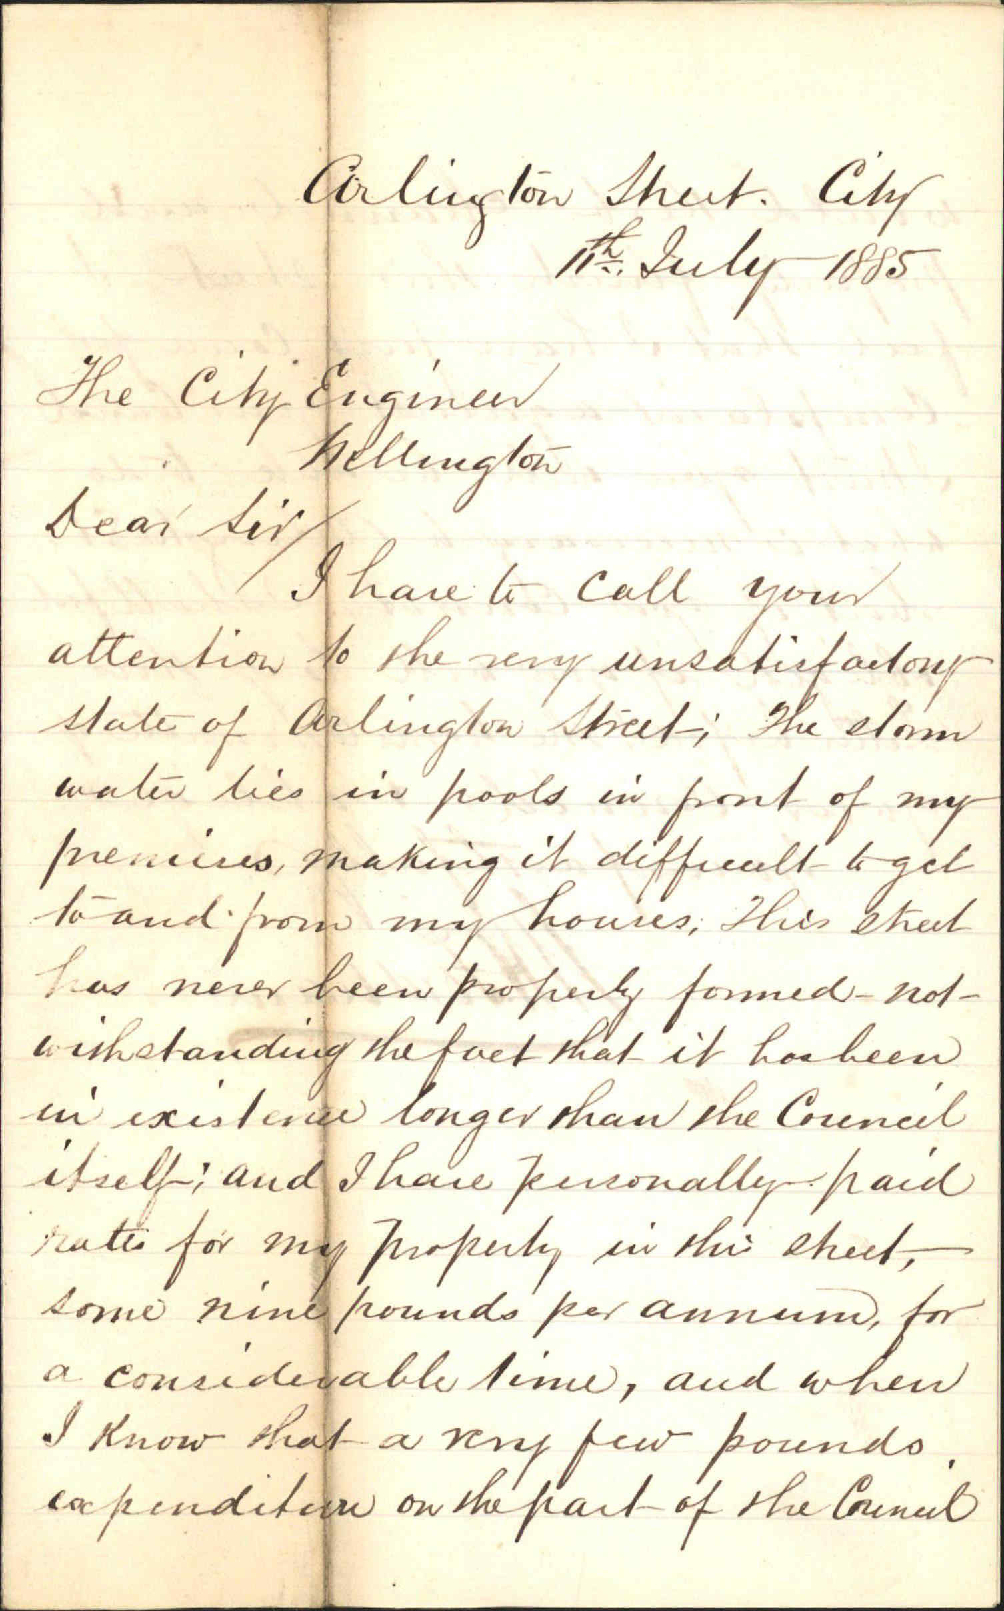 Arlington Street. City
11th. July 1885
The City Engineer
Wellington
Dear Sir/
I have to call your
attention to the very unsatisfactory
state of Arlington Street; The storm
water lies in pools in front of my
premises, making it difficult to get
to and from my houses; This street
has never been properly formed - not-
withstanding the fact that it has been
in existence longer than the Council
itself; and I have personally paid
rates for my property in this street,
some nine pounds per annum, for
a considerable time, and when
I know that a very few pounds
expenditure on the part of the Council